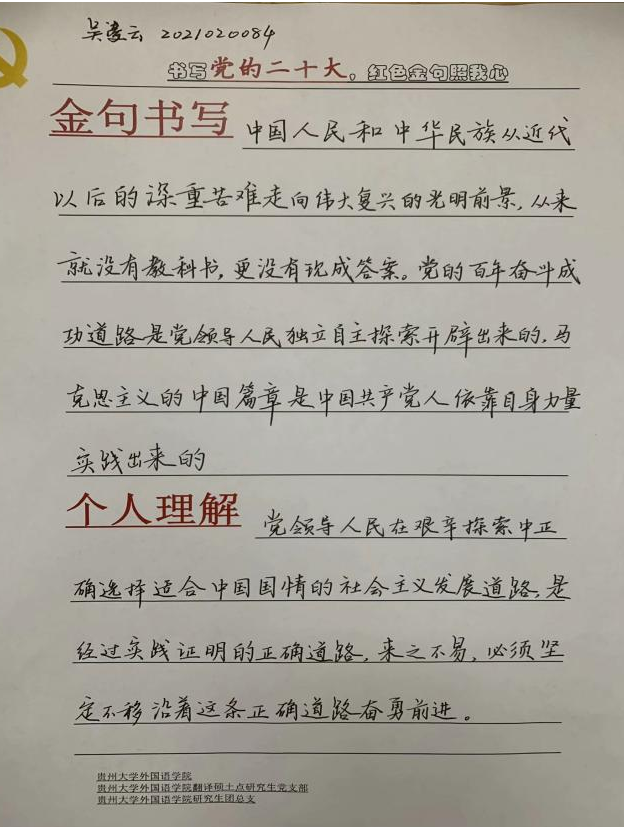 吴凌云 2021020084
书写党的二十大，红色金句照我心
金句书写 中国人民和中华民族从近代
以后的深重苦难走向伟大复兴的光明前景，从来
就没有教科书，更没有现成答案。党的百年奋斗成
功道路是党领导人民独立自主探索开辟出来的，马
克思主义的中国篇章是中国共产党人依靠自身力量
实践出来的
个人理解 党领导人民在艰辛探索中正
确选择适合中国国情的社会主义发展道路，是
经过实践证明的正确道路，来之不易，必须坚
定不移沿着这条正确道路奋勇前进。
贵州大学外国语学院
贵州大学外国语学院翻译硕士点研究生党支部
贵州大学外国语学院研究生团总支